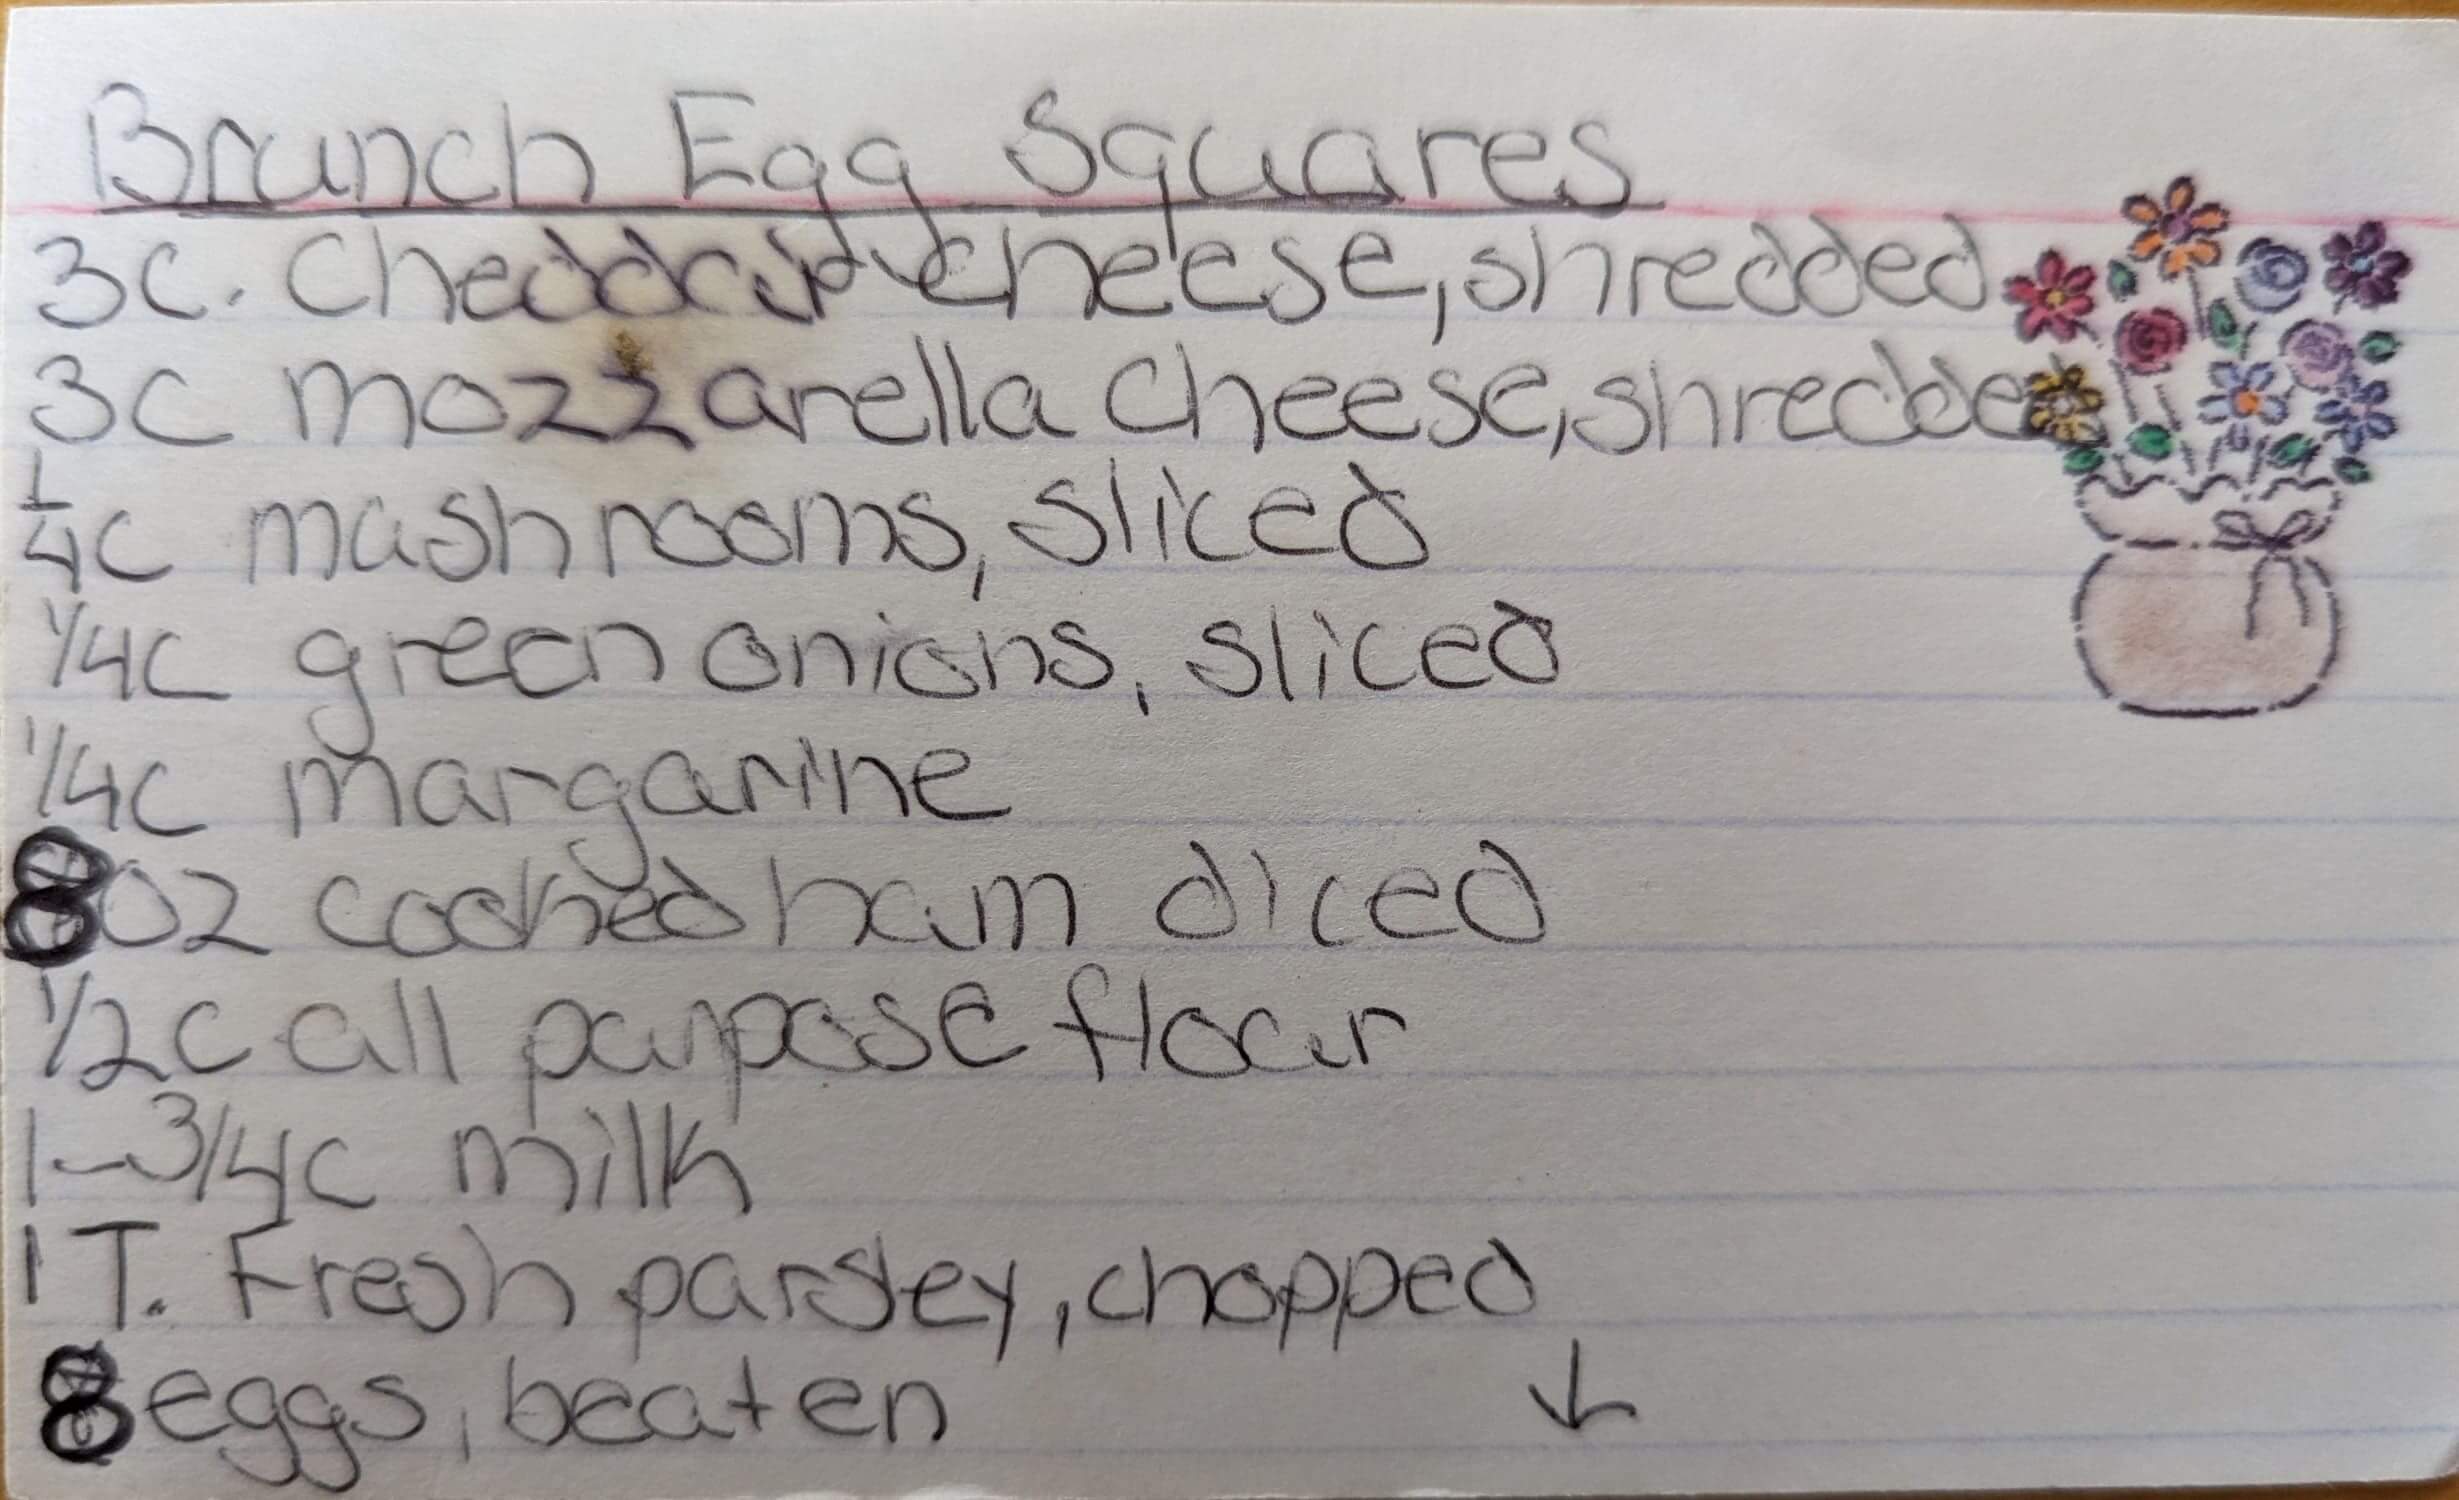 Brunch Egg Squares
3C. Cheddar cheese, shredded
3C mozzarella cheese, shredded
1/4C mushrooms, sliced
1/4C green onions, sliced
1/4C margarine
8oz cooked ham diced
1/2C all purpose flour
1-3/4C milk
1 T. Fresh parsley, chopped
8 eggs, beaten ↓